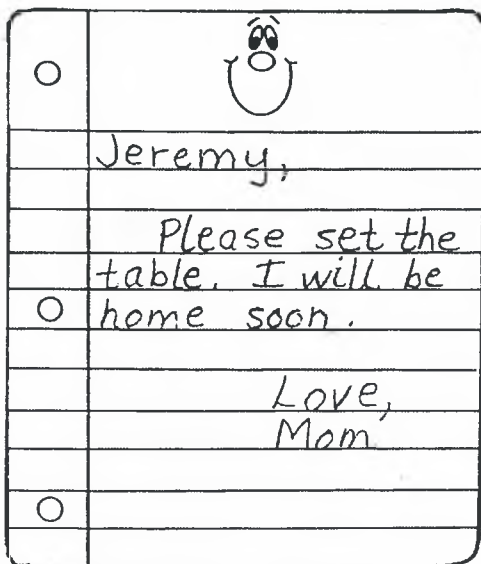 Jeremy,
Please set the
table. I will be
home soon.
Love,
Mom